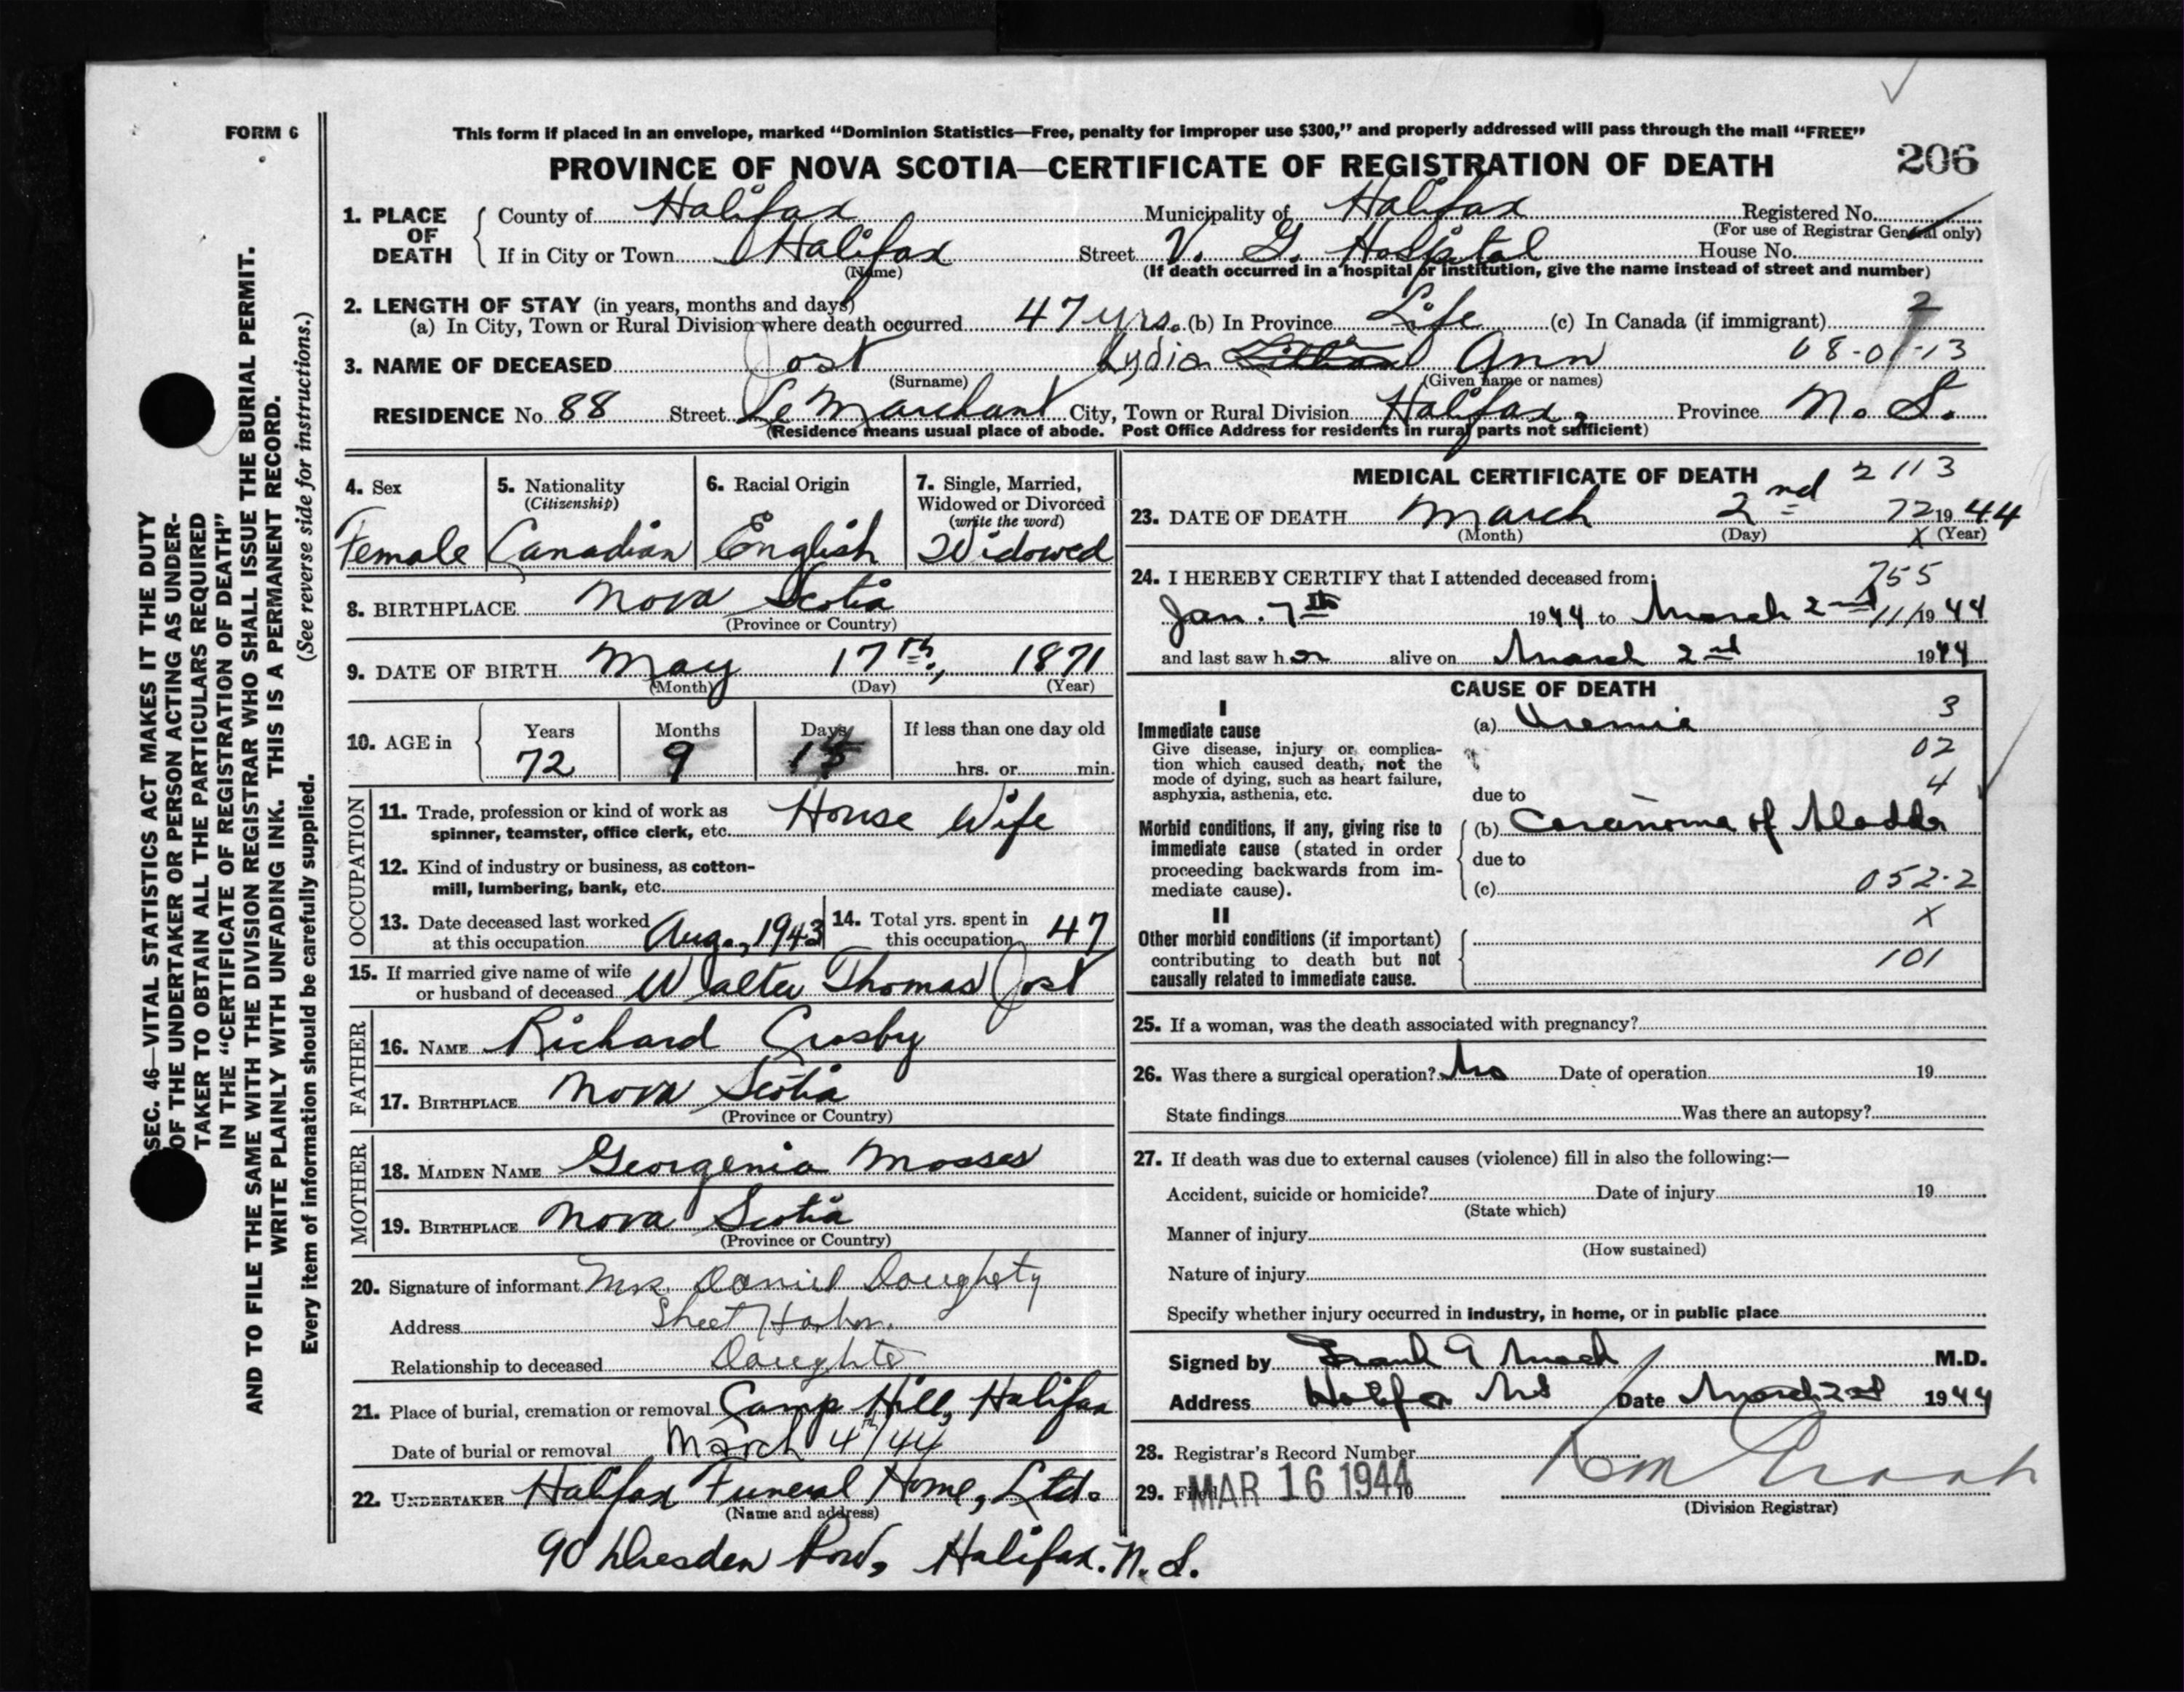 FORM 6
This form if placed in an envelope, marked “Dominion Statistics—Free, penalty for improper use $300,” and properly addressed will pass through the mail “FREE”
PROVINCE OF NOVA SCOTIA—CERTIFICATE OF REGISTRATION OF DEATH 206
SEC. 46—VITAL STATISTICS ACT MAKES IT THE DUTY
OF THE UNDERTAKER OR PERSON ACTING AS UNDER-
TAKER TO OBTAIN ALL THE PARTICULARS REQUIRED
IN THE “CERTIFICATE OF REGISTRATION OF DEATH”
AND TO FILE THE SAME WITH THE DIVISION REGISTRAR WHO SHALL ISSUE THE BURIAL PERMIT.
WRITE PLAINLY WITH UNFADING INK. THIS IS A PERMANENT RECORD.
Every item of information should be carefully supplied. (See reverse side for instructions.)
1. PLACE OF DEATH
County of Halifax Municipality of Halifax Registered No.
(For use of Registrar General only)
If in City or Town Halifax Street V. G. Hospital House No.
(Name) (If death occurred in a hospital or institution, give the name instead of street and number)
2. LENGTH OF STAY (in years, months and days)
(a) In City, Town or Rural Division where death occurred 47 yrs. (b) In Province Life (c) In Canada (if immigrant) 2
3. NAME OF DECEASED Jost Lydia Ann 08-01-13
(Surname) (Given name or names)
RESIDENCE No. 88 Street Le Marchant City, Town or Rural Division Halifax, Province N. S.
(Residence means usual place of abode. Post Office Address for residents in rural parts not sufficient)
4. Sex
Female
5. Nationality
(Citizenship)
Canadian
6. Racial Origin
English
7. Single, Married,
Widowed or Divorced
(write the word)
Widowed
8. BIRTHPLACE Nova Scotia
(Province or Country)
9. DATE OF BIRTH May 17th, 1871
(Month) (Day) (Year)
10. AGE in
Years Months Days If less than one day old
72 9 15 hrs. or min.
OCCUPATION
11. Trade, profession or kind of work as
spinner, teamster, office clerk, etc. House Wife
12. Kind of industry or business, as cotton-
mill, lumbering, bank, etc.
13. Date deceased last worked
at this occupation Aug., 1943
14. Total yrs. spent in
this occupation 47
15. If married give name of wife
or husband of deceased Walter Thomas Jost
FATHER
16. NAME Richard Crosby
17. BIRTHPLACE Nova Scotia
(Province or Country)
MOTHER
18. MAIDEN NAME Georgenia Mosses
19. BIRTHPLACE Nova Scotia
(Province or Country)
20. Signature of informant Mrs. Daniel Doughety
Address Sheet Harbor.
Relationship to deceased Daughter
21. Place of burial, cremation or removal Camp Hill, Halifax
Date of burial or removal March 4th/44
22. UNDERTAKER Halifax Funeral Home, Ltd.
(Name and address)
90 Dresden Row, Halifax. N. S.
MEDICAL CERTIFICATE OF DEATH 2113
23. DATE OF DEATH March 2nd 72 1944
(Month) (Day) X (Year)
24. I HEREBY CERTIFY that I attended deceased from: 755
Jan. 7th 1944 to March 2nd 11/1944
and last saw her alive on March 2nd 1944
CAUSE OF DEATH
I
Immediate cause
Give disease, injury or complica-
tion which caused death, not the
mode of dying, such as heart failure,
asphyxia, asthenia, etc.
(a) Uremia 3
02
4
due to
Morbid conditions, if any, giving rise to
immediate cause (stated in order
proceeding backwards from im-
mediate cause).
(b) Carcinoma of bladder
due to
(c) 052.2
II X
Other morbid conditions (if important)
contributing to death but not
causally related to immediate cause.
101
25. If a woman, was the death associated with pregnancy?
26. Was there a surgical operation? No Date of operation 19
State findings Was there an autopsy?
27. If death was due to external causes (violence) fill in also the following:—
Accident, suicide or homicide? Date of injury 19
(State which)
Manner of injury
(How sustained)
Nature of injury
Specify whether injury occurred in industry, in home, or in public place
Signed by Frank G Mack M.D.
Address Halifax NS Date March 2nd 1944
28. Registrar's Record Number
29. Filed MAR 16 1944 19
(Division Registrar)